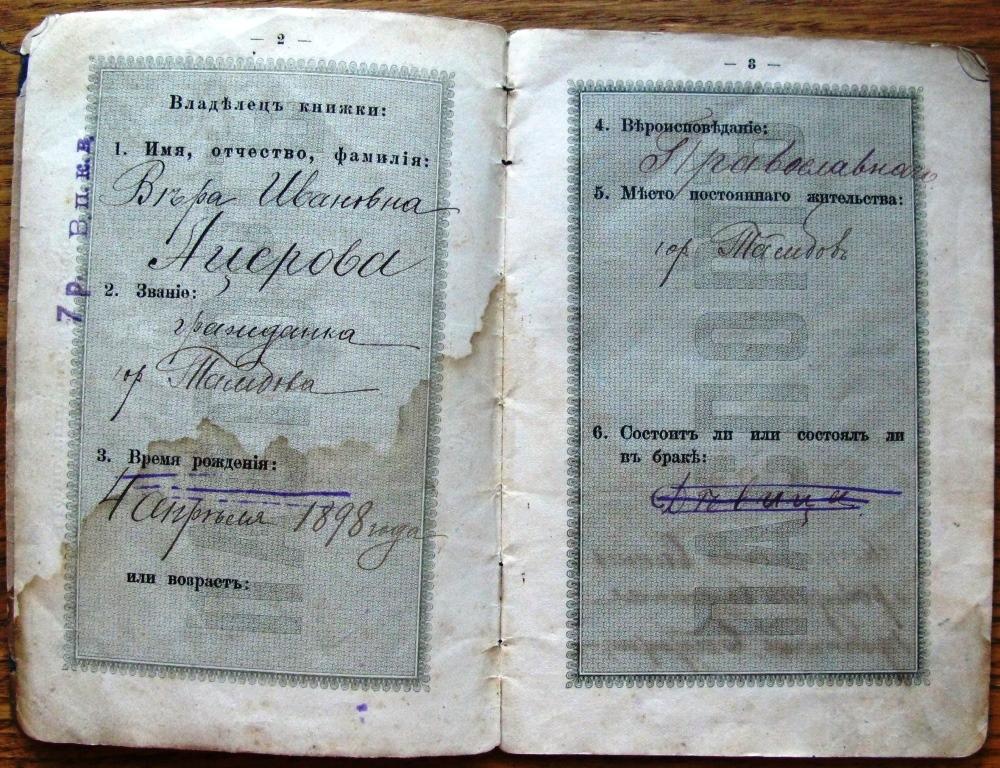 — 2 —
Владѣлецъ книжки:
1. Имя, отчество, фамилія:
Вѣра Ивановна
Ацерова
2. Званіе:
гражданка
гор Тамбова
3. Время рожденія:
4 апрѣля 1898 года
или возрастъ:
7 р. В.п.к.в.
— 3 —
4. Вѣроисповѣданіе:
Православнаго
5. Мѣсто постояннаго жительства:
гор Тамбовъ
6. Состоитъ ли или состоялъ ли
въ бракѣ:
Дѣвица
ПАСПОРТ